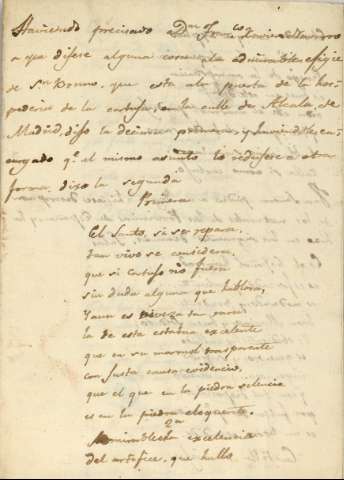 Haviendo precisado a Dn Franco Xavier
a que dijese alguna cosa a la admirable efigie
de Sn Bruno, que esta a la puerta de la hos-
pederia de la cartuja, en la calle de Alcala, de
Madrid, dijo la decima primera, y haviendole en-
cargado qe. el mismo asunto lo redujese a otra
forma, dijo la segunda
Primera
El Santo, si se repara,
tan vivo se considera,
que si cartujo no fuera
sin duda alguna que hablara,
Y aun es viveza tan rara
la de esta estatua excelente
que en su marmol trasparente
con justa causa evidencio,
que el que en la piedra silencio
es en la piedra eloquente.
2a
Admirable la excelencia
del artifice, que hallo